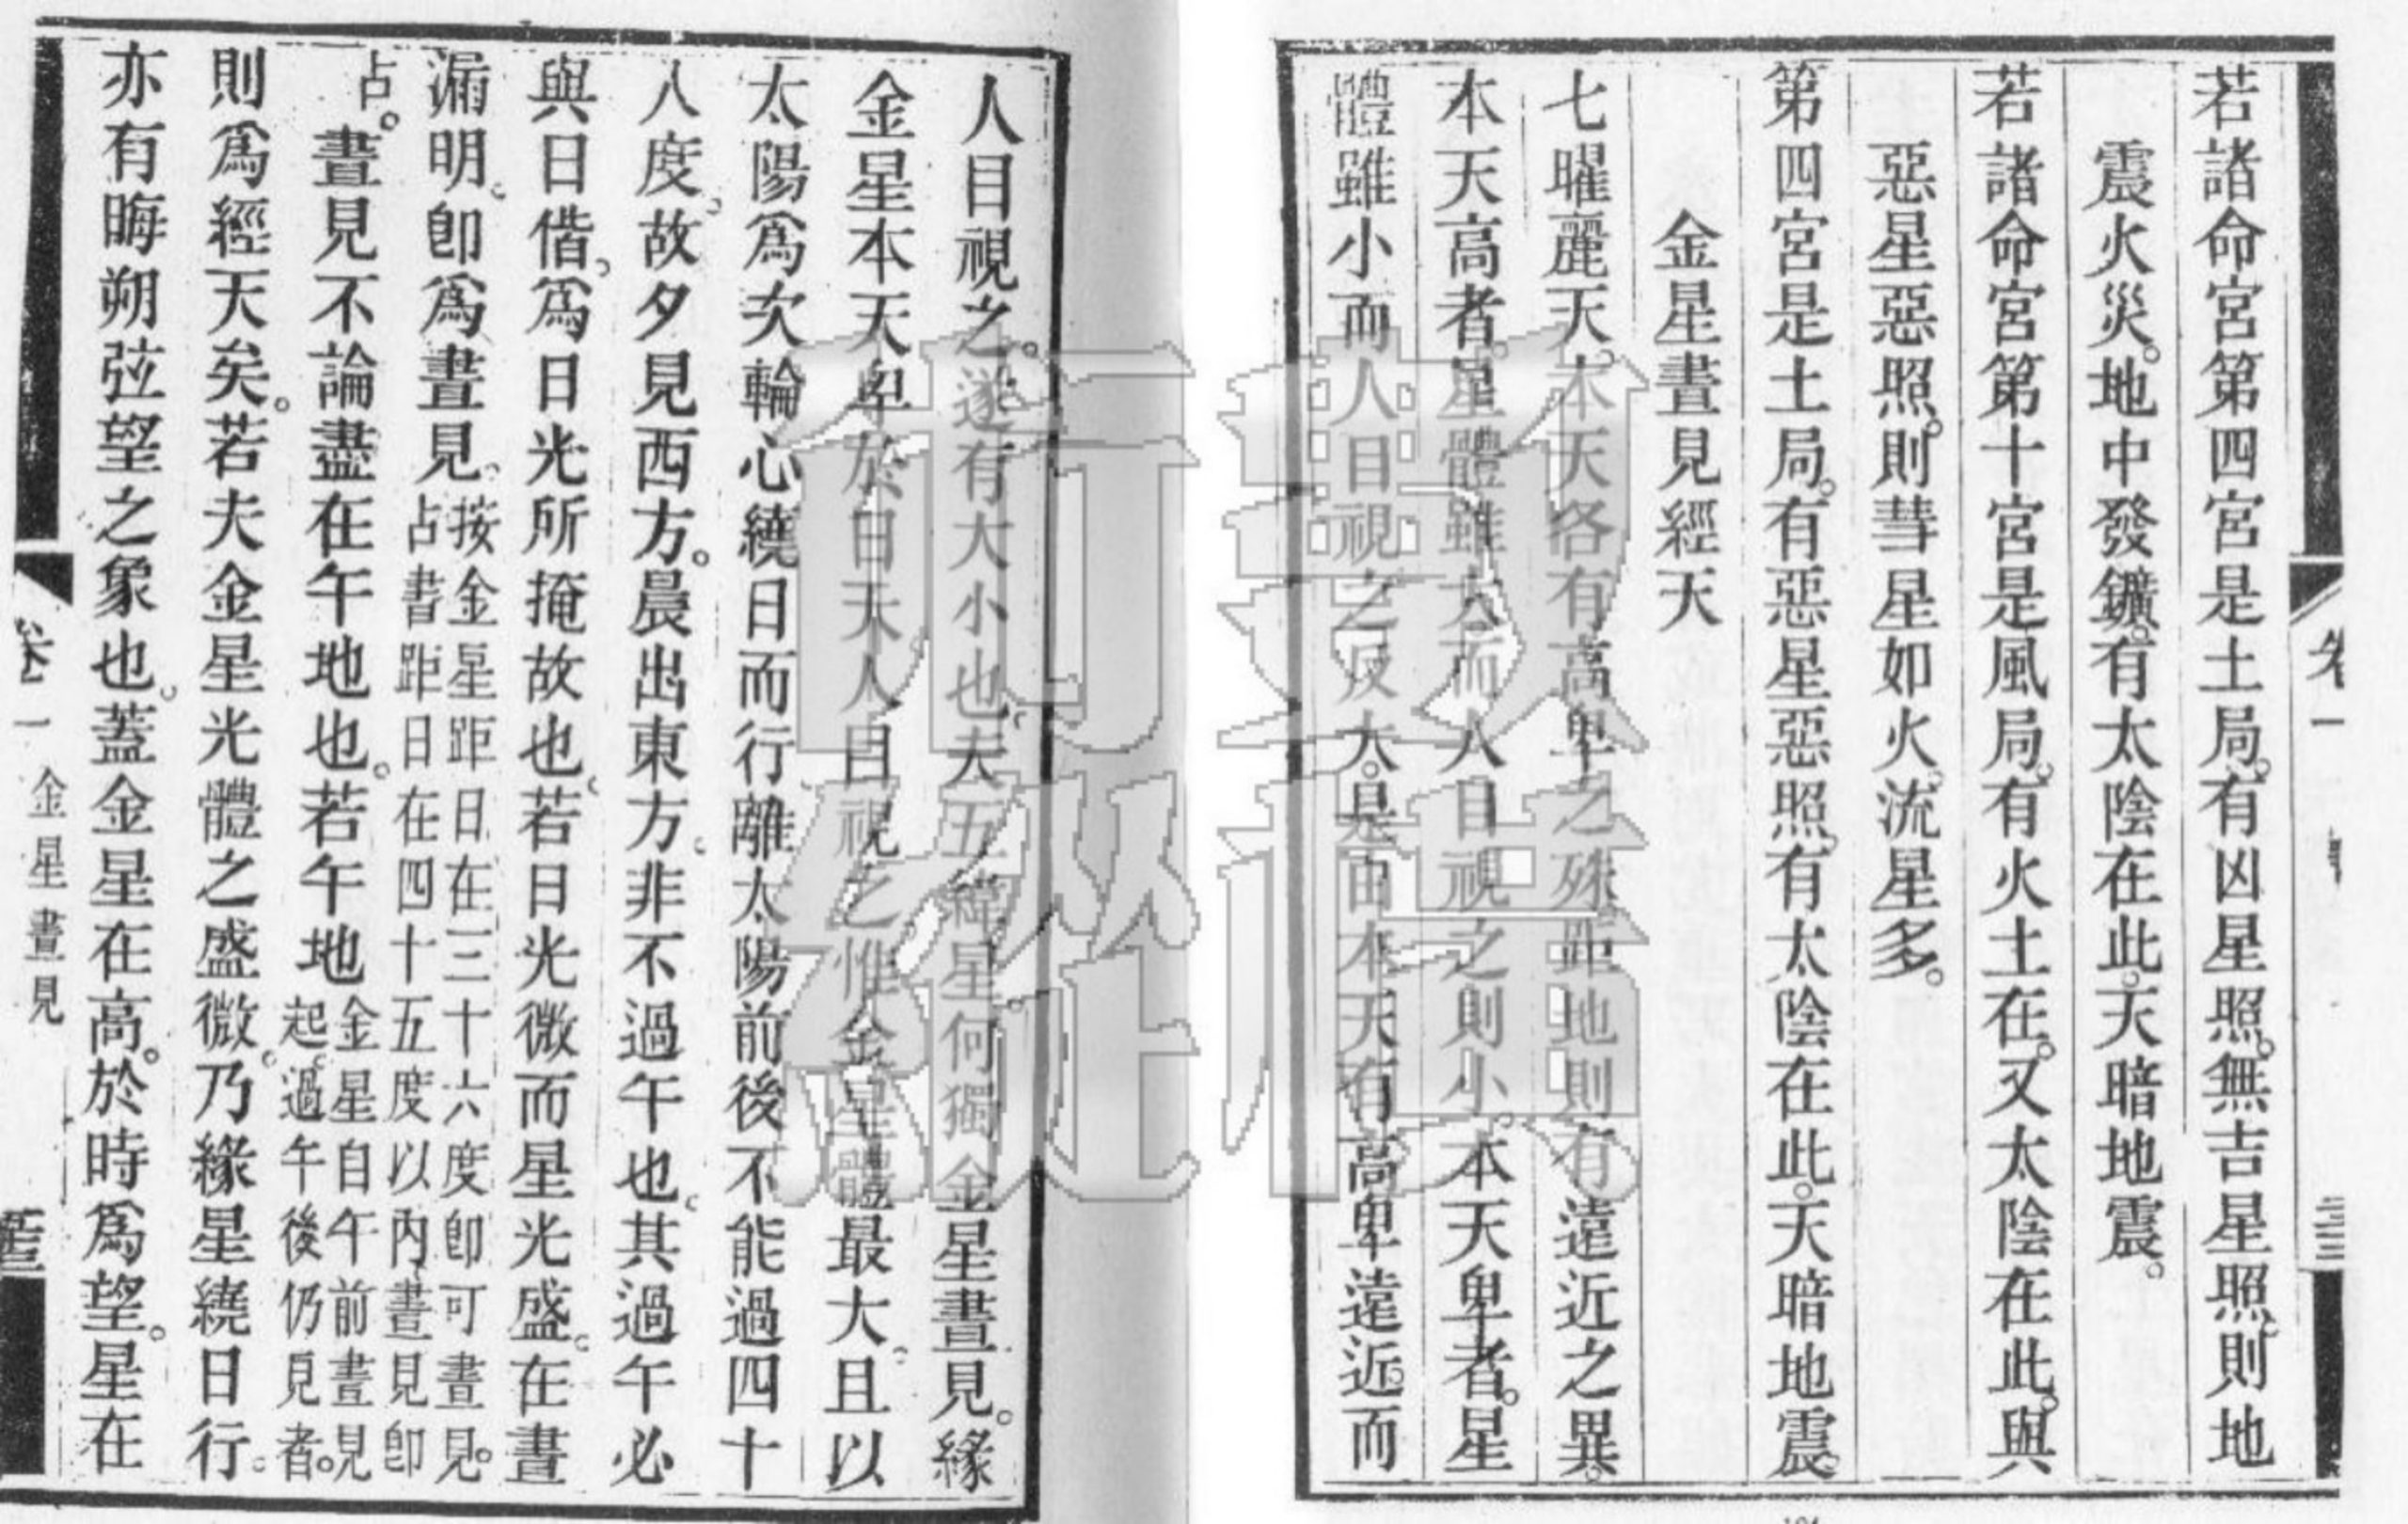 若諸命宮第四宮是土局。有凶星照。無吉星照。則地
震火災。地中發鑛。有太陰在此。天暗地震。
若諸命宮第十宮是風局。有火土在。又太陰在此。與
惡星惡照。則彗星如火。流星多。
第四宮是土局。有惡星惡照。有太陰在此。天暗地震。
金星晝見經天
七曜麗天。本天各有高卑之殊。距地則有遠近之異。
本天高者。星體雖大。而人目視之則小。本天卑者。星
體雖小而人目視之反大。是由本天有高卑遠近。而
人目視之。遂有大小也。夫五緯星。何獨金星晝見。緣
金星本天卑於日天。人目視之惟金星體最大。且以
太陽爲次輪心繞日而行離太陽前後不能過四十
八度。故夕見西方。晨出東方。非不過午也。其過午必
與日偕。爲日光所掩故也。若日光微而星光盛。在晝
漏明。卽爲晝見。按金星距日在三十六度卽可晝見。
占書距日在四十五度以內晝見卽
占。晝見不論盡在午地也。若午地金星自午前晝見
起。過午後仍見者。
則爲經天矣。若夫金星光體之盛微。乃緣星繞日行。
亦有晦朔弦望之象也。蓋金星在高。於時爲望。星在
卷一 金星晝見